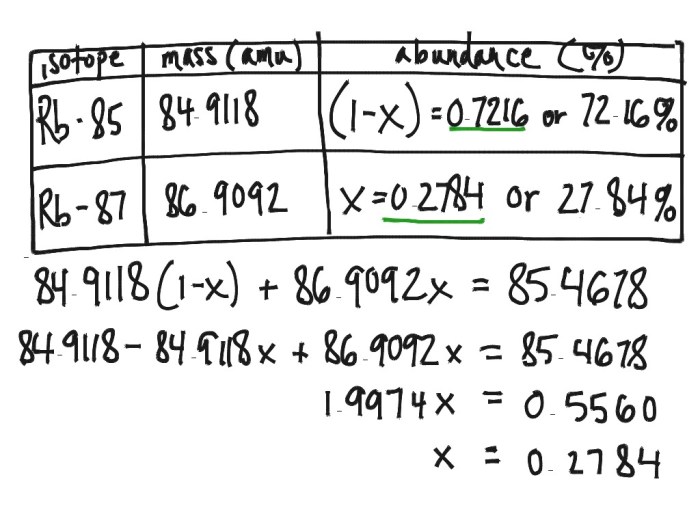 isotope mass (amu) abundance (%)
Rb-85 84.9118 (1-x) = 0.7216 or 72.16%
Rb-87 86.9092 x = 0.2784 or 27.84%
84.9118(1-x) + 86.9092x = 85.4678
84.9118 - 84.9118x + 86.9092x = 85.4678
1.9974x = 0.5560
x = 0.2784